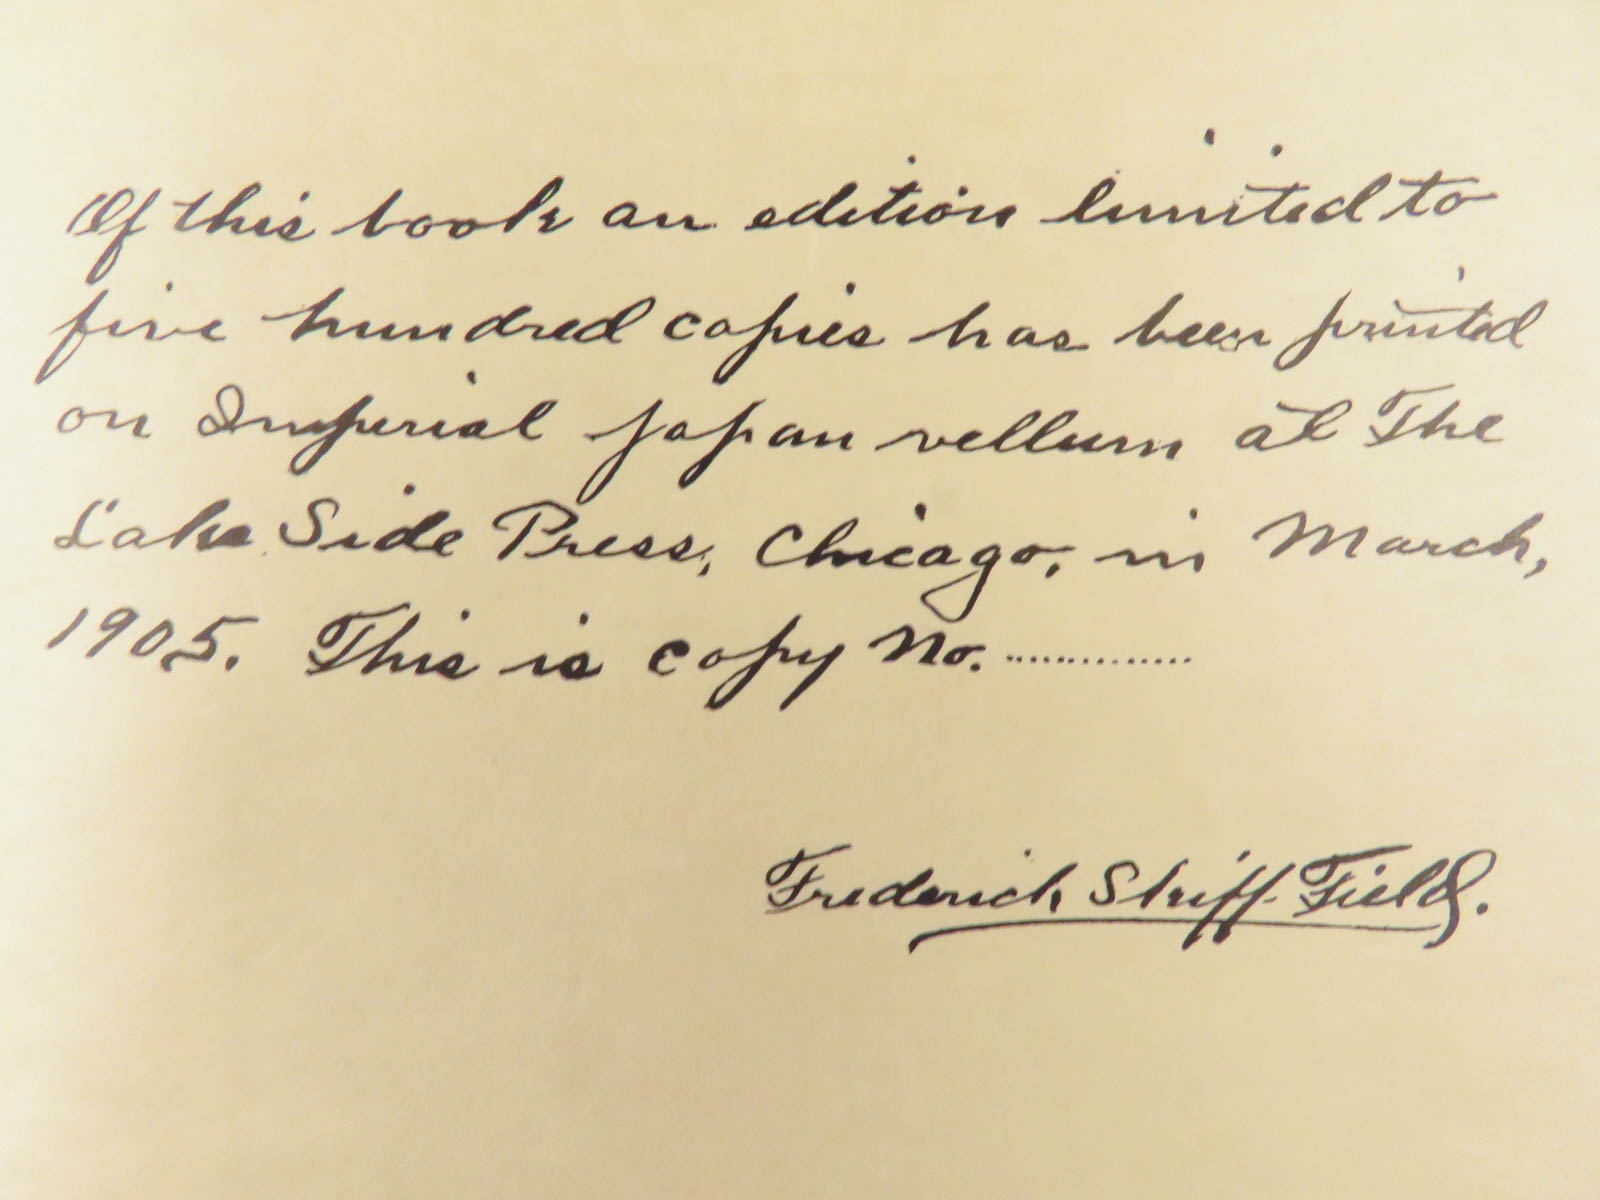 Of this book an edition limited to
five hundred copies has been printed
on Imperial Japan vellum at The
Lake Side Press, Chicago, in March,
1905. This is copy No. ..............
Frederick Skiff Field.